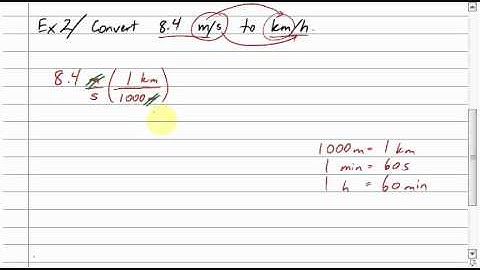 Ex 2/ Convert 8.4 m/s to km/h.
8.4 m/s (1 km/1000 m)
1000m = 1 km
1 min = 60s
1 h = 60 min